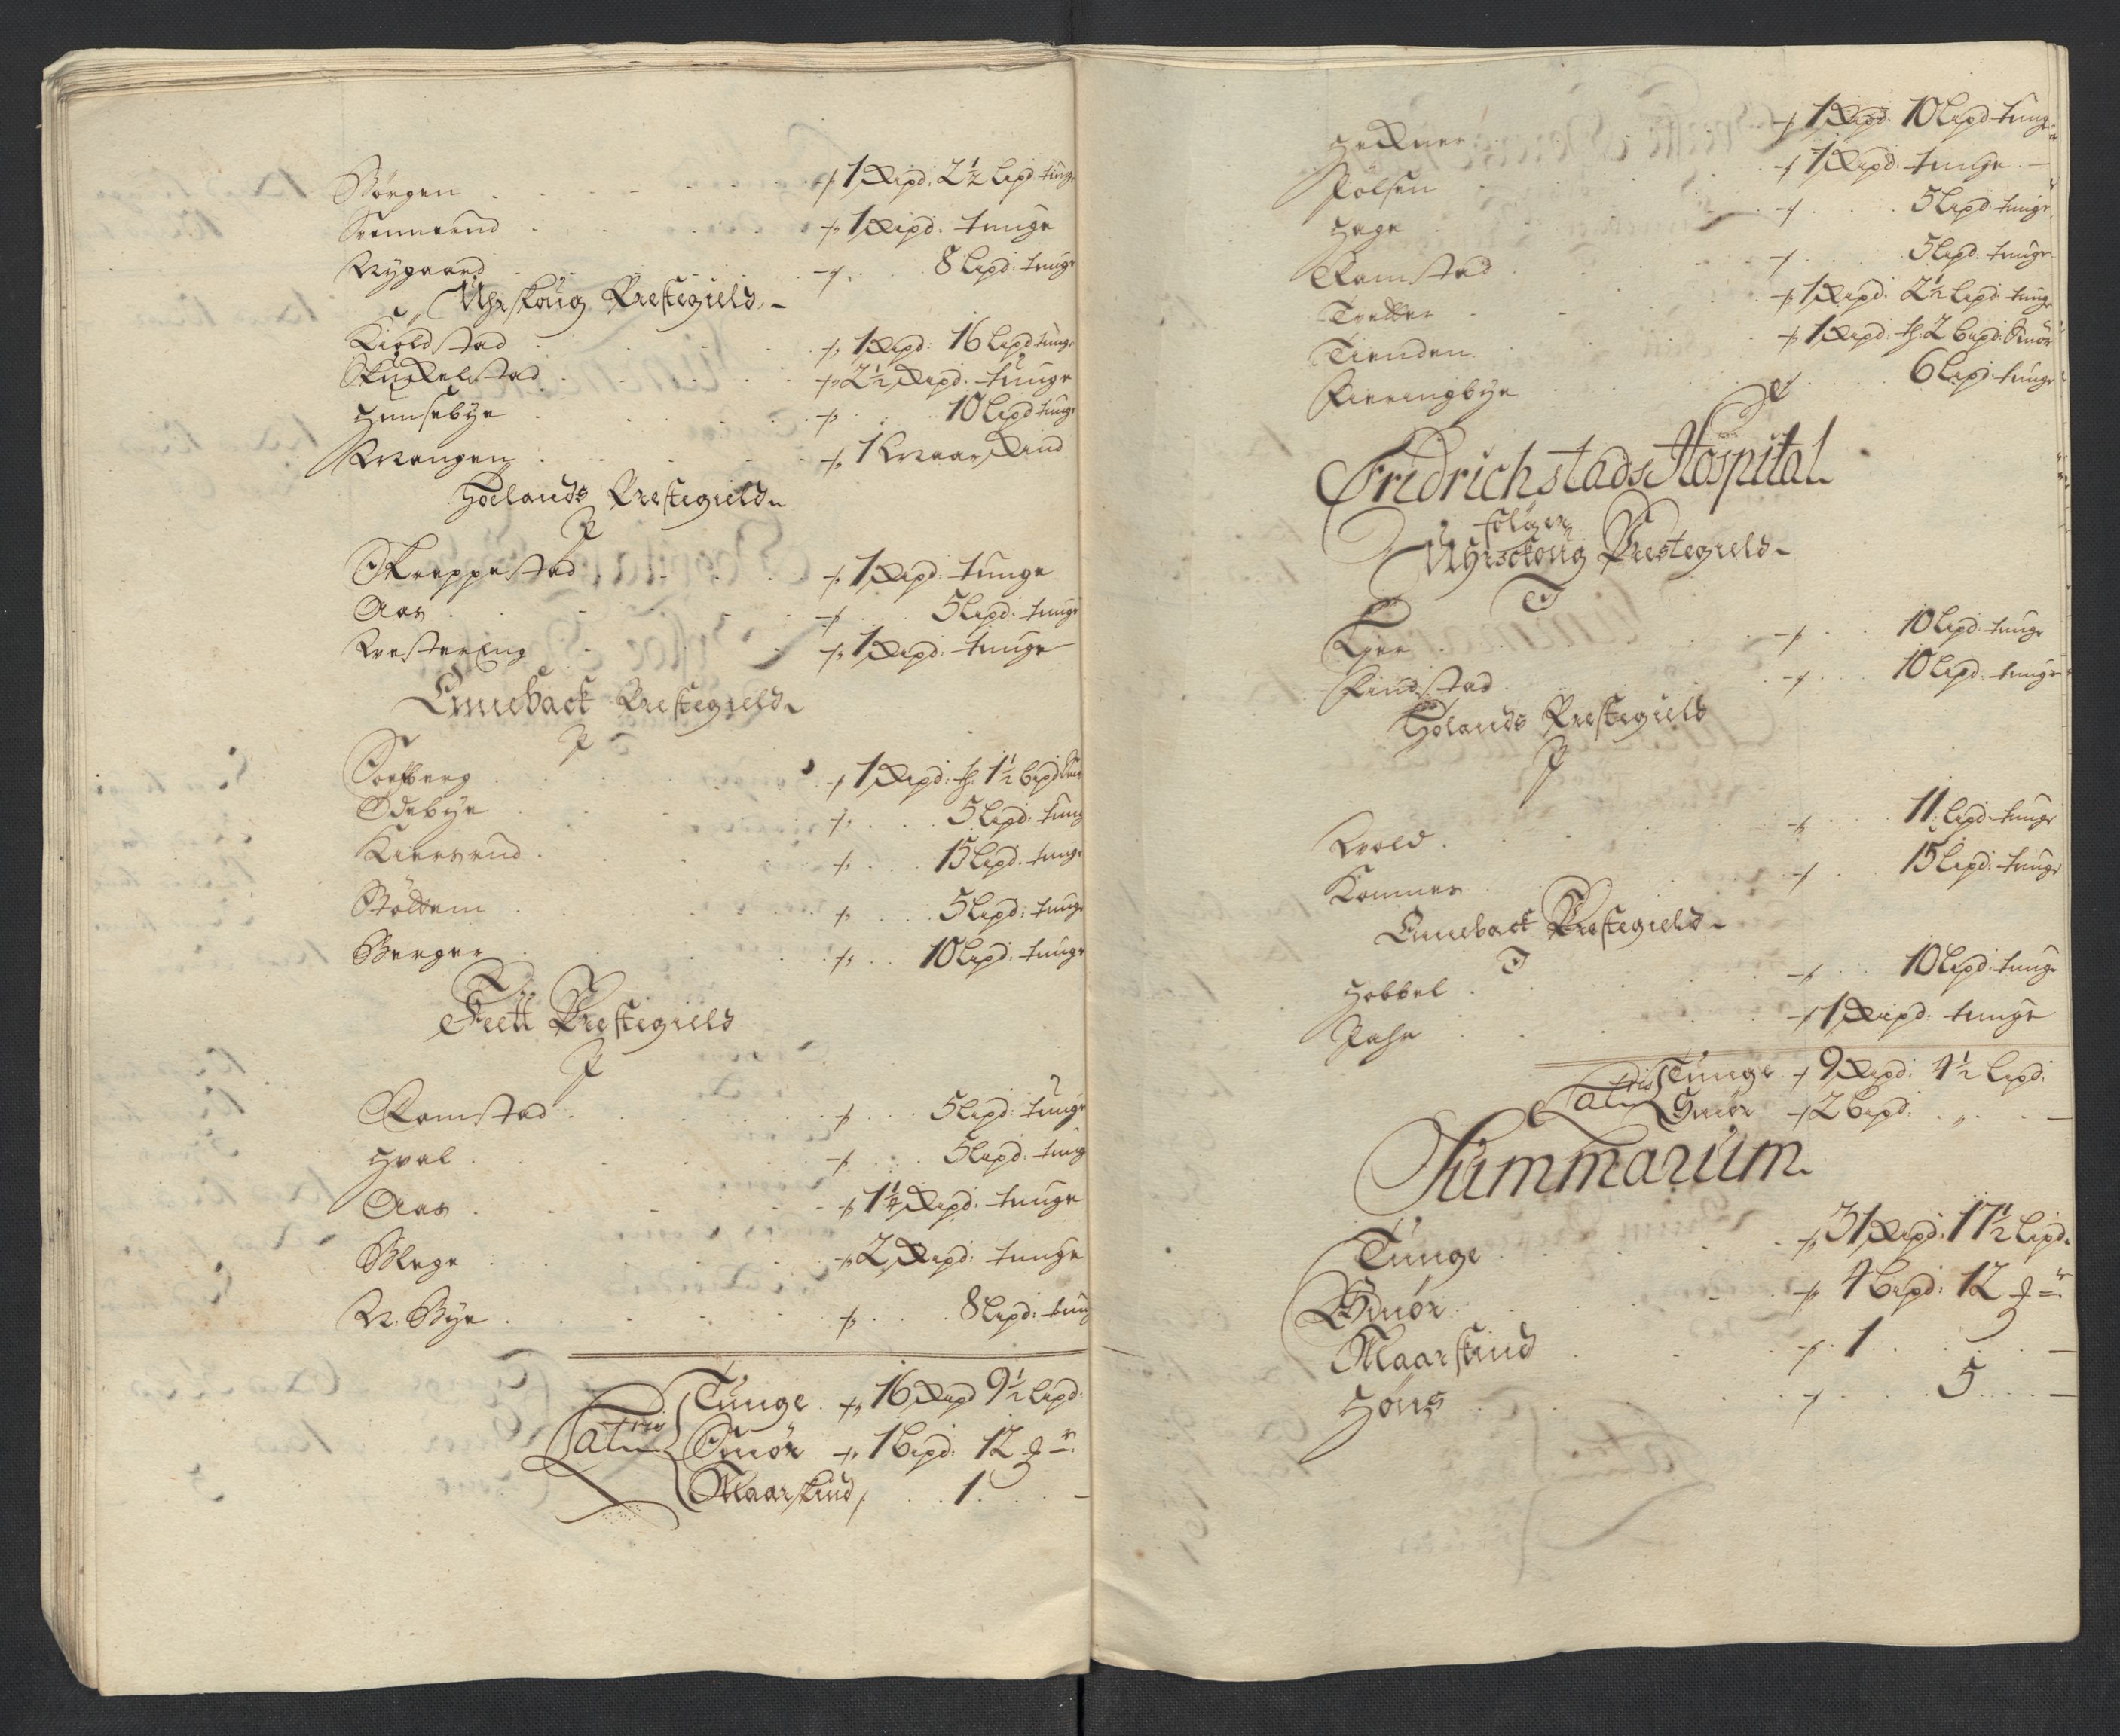 Børgen . . . . . . + 1 Skpd: 2½ Lispd tunge
Svennerud . . . . . + 1 Skpd: tunge
Nygaard . . . . . + . . 8 Lispd: tunge
Uhrskoug Prestegield
Kioldstad . . . . . + 1 Skpd: 16 Lispd tunge
Skukelstad . . . . . + 2½ Skpd: tunge
Hunsebye . . . . . + . . 10 Lispd tunge
Mangen . . . . . + 1 Maar Skind
Hoelands Prestegield
P
Skreppestad . . . . + 1 Skpd: tunge
Aas . . . . . + . . 5 Lispd: tunge
Vestereng . . . . + 1 Skpd: tunge
Enneback Prestegield
P
Torsberg . . . . . + 1 Skpd: th: 1½ Bspd Smør
Odebye . . . . + . . 5 Lispd: tung
Kirkerud . . . . + . . 15 Lispd: tunge
Støttem . . . . . + . . 5 Lispd: tunge
Berger . . . . . + . . 10 Lispd: tunge
Feett Prestegield
P
Ramstad . . . . . + . . 5 Lispd: tunge
Hval . . . . . + . . 5 Lispd: tung
Aas . . . . . + 1¼ Skpd: tunge
Blege . . . . . + 2 Skpd: tunge
N: Bye . . . . . + . . 8 Lispd: tung
Latris Tunge . + 16 Skpd 9½ Lispd:
Smør + 1 Bspd: 12 mr:
Maarskind + . . 1 . . —
Heckner . . . + 1 Skpd: 10 Lispd tunge
Pølsen . . . . + 1 Skpd: tunge —
Hage . . . . + . . 5 Lispd: tunge
Ramstad . . . . + . . 5 Lispd: tunge
Tretter . . . . + 1 Skpd: 2½ Lispd: tunge
Tienden . . . . + 1 Skpd: th: 2 Bspd: Smør
Fieringbye . . . . . . 6 Lispd: tunge
Fridrichstads Hospital
følger
Uhrsckoug Prestegield
T
Kier . . . . + . . 10 Lispd: tunge
Findstad . . . . + . . 10 Lispd: tunge
Hølands Prestegield
P
Vold . . . . + . . 11 Lispd: tunge
Kommer . . . . + . . 15 Lispd: tunge
Enneback Prestegield
T
Hobbel . . . . + . . 10 Lispd: tunge
Pahr . . . . + 1 Skpd: tunge
Latris Tunge + 9 Skpd: 4½ Lispd:
Smør + 2 Bspd: . „ . —
Summarum
Tunge . . . . + 31 Skpd: 17½ Lispd.
Smør . . . . + 4 Bspd: 12 mr:
Maarskind . . . + 1 . . . —
Høns . . . . + . . 5 . . —